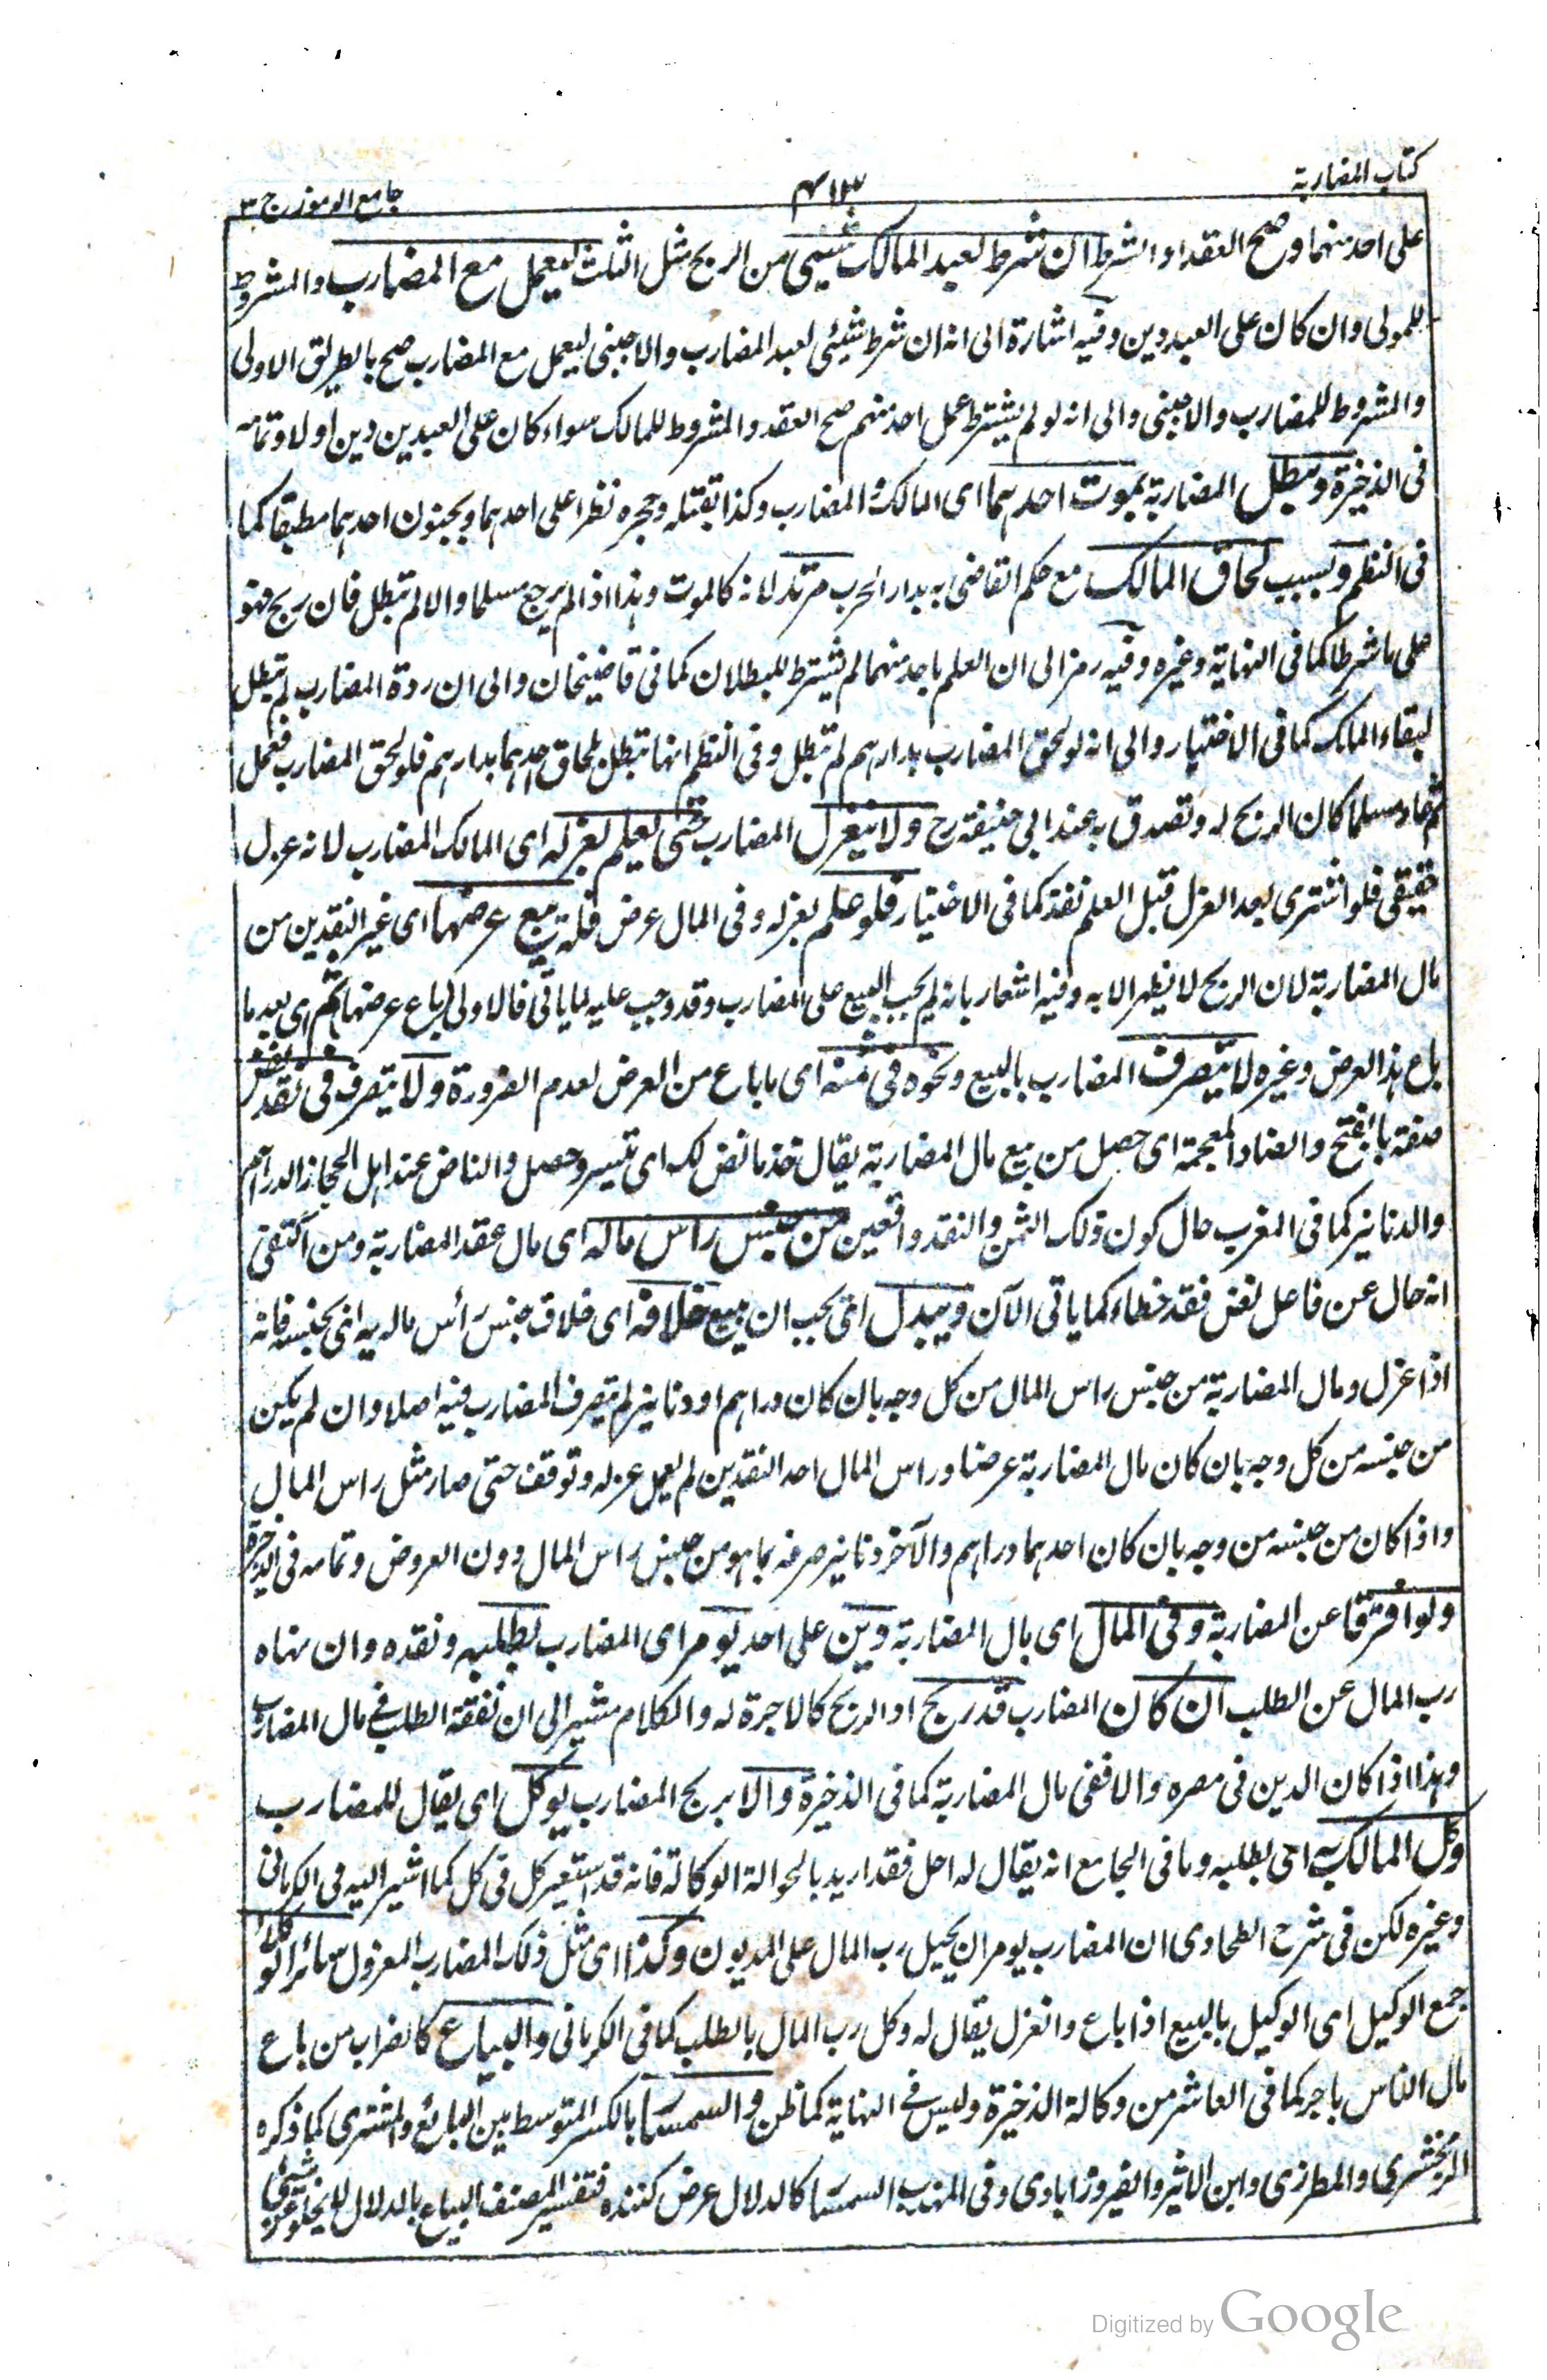 كتاب المضاربة
جامع الرموز ج ٣
على احد منهما وصح العقد او الشرط ان شرط لعبد المالك شيئ من الربح مثل الثلث ليعمل مع المضارب والمشروط
للمولى وان كان على العبد دين وفيه اشارة الى انه ان شرط شيئى لعبد المضارب والاجنبى ليعمل مع المضارب صح بالطريق الاولى
والمشروط للمضارب والاجنبى والى انه لو لم يشترط عمل احد منهم صح العقد والمشروط للمالك سواء كان على العبدين دين او لا وتمامه
فى الذخيرة وتبطل المضاربة بموت احدهما اى المالك والمضارب وكذا بقتله وحجره نظرا على احدهما وبجنون احدهما مطبقا كما
فى النظم وبسبب لحاق المالك مع حكم القاضى به بدار الحرب مرتدا لانه كالموت وهذا اذا لم يرجع مسلما والا لم تبطل فان ربح فهو
على ما شرطا كما فى النهاية وغيره وفيه رمز الى ان العلم باحد منهما لم يشترط للبطلان كما فى قاضيخان والى ان ردة المضارب لم تبطل
لبقاء المالك كما فى الاختيار والى انه لو لحق المضارب بدارهم لم تبطل وفى النظم انها تبطل بلحاق احدهما بدارهم فلو لحق المضارب فعمل
ثم عاد مسلما كان الربح له وتصدق به عند ابى حنيفة رح ولا ينعزل المضارب حتى يعلم بعزله اى المالك المضارب لانه عزل
حقيقى فلو اشترى بعد العزل قبل العلم نفذ كما فى الاختيار فلو علم بعزله وفى المال عرض فله بيع عرضها اى غير النقدين من
مال المضاربة لان الربح لا يظهر الا به وفيه اشعار بانه لم يجب البيع على المضارب وقد وجب عليه لما ياتى فالاولى يباع عرضها ثم اى بعد ما
باع هذا العرض وغيره لا يتصرف المضارب بالبيع ونحوه فى ثمنه اى ما باع من العرض لعدم الضرورة ولا يتصرف فى نقد نض
صفته بالفتح والضاد المعجمة اى حصل من بيع مال المضاربة يقال خذ ما نض لك اى تيسر وحصل والناض عند اهل الحجاز الدراهم
والدنانير كما فى المغرب حال كون ذلك الثمن والنقد واقعين من جنس راس ماله اى مال عقد المضاربة ومن اكتفى
انه حال عن فاعل نض فقد خطاء كما ياتى الآن ويبدل اى يجب ان يبيع خلافه اى خلاف جنس رأس ماله به اى بجنسه فانه
اذا عزل ومال المضاربة من جنس راس المال من كل وجه بان كان دراهم او دنانير لم يتصرف المضارب فيه اصلا وان لم يكن
من جنسه من كل وجه بان كان مال المضاربة عرضا وراس المال احد النقدين لم يعمل عزله وتوقف حتى صار مثل راس المال
واذا كان من جنسه من وجه بان كان احدهما دراهم والآخر دنانير صرفه بما هو من جنس راس المال دون العروض وتمامه فى الذخيرة
ولو افترقا عن المضاربة وفى المال اى مال المضاربة دين على احد يومر اى المضارب بطلبه ونقده وان نهاه
رب المال عن الطلب ان كان المضارب قد ربح اذ الربح كالاجرة له والكلام مشير الى ان نفقة الطلب فى مال المضارب
وهذا اذا كان الدين فى مصره والا ففى مال المضاربة كما فى الذخيرة والا يربح المضارب يوكل اى يقال للمضارب
وكل المالك به اى بطلبه وما فى الجامع انه يقال له احل فقد اريد بالحوالة الوكالة فانه قد استعير كل فى كل كما اشير اليه فى الكرمانى
وغيره لكن فى شرح الطحاوى ان المضارب يومر ان يحيل رب المال على المديون وكذا اى مثل ذلك المضارب المعزول سائر الوكلاء
جمع الوكيل اى الوكيل بالبيع اذا باع وانعزل يقال له وكل رب المال بالطلب كما فى الكرمانى والبياع كالضراب من باع
مال الناس باجر كما فى العاشر من وكالة الذخيرة وليس فى النهاية كما ظن والسمسار بالكسر المتوسط بين البائع والمشترى كما ذكره
الزمخشرى والمطرزى وابن الاثير والفيروزابادى وفى المهذب السمسار كالدلال عرض كننده فتفسير المصنف البياع بالدلال لا يخلو عن شيئ
Digitized by Google